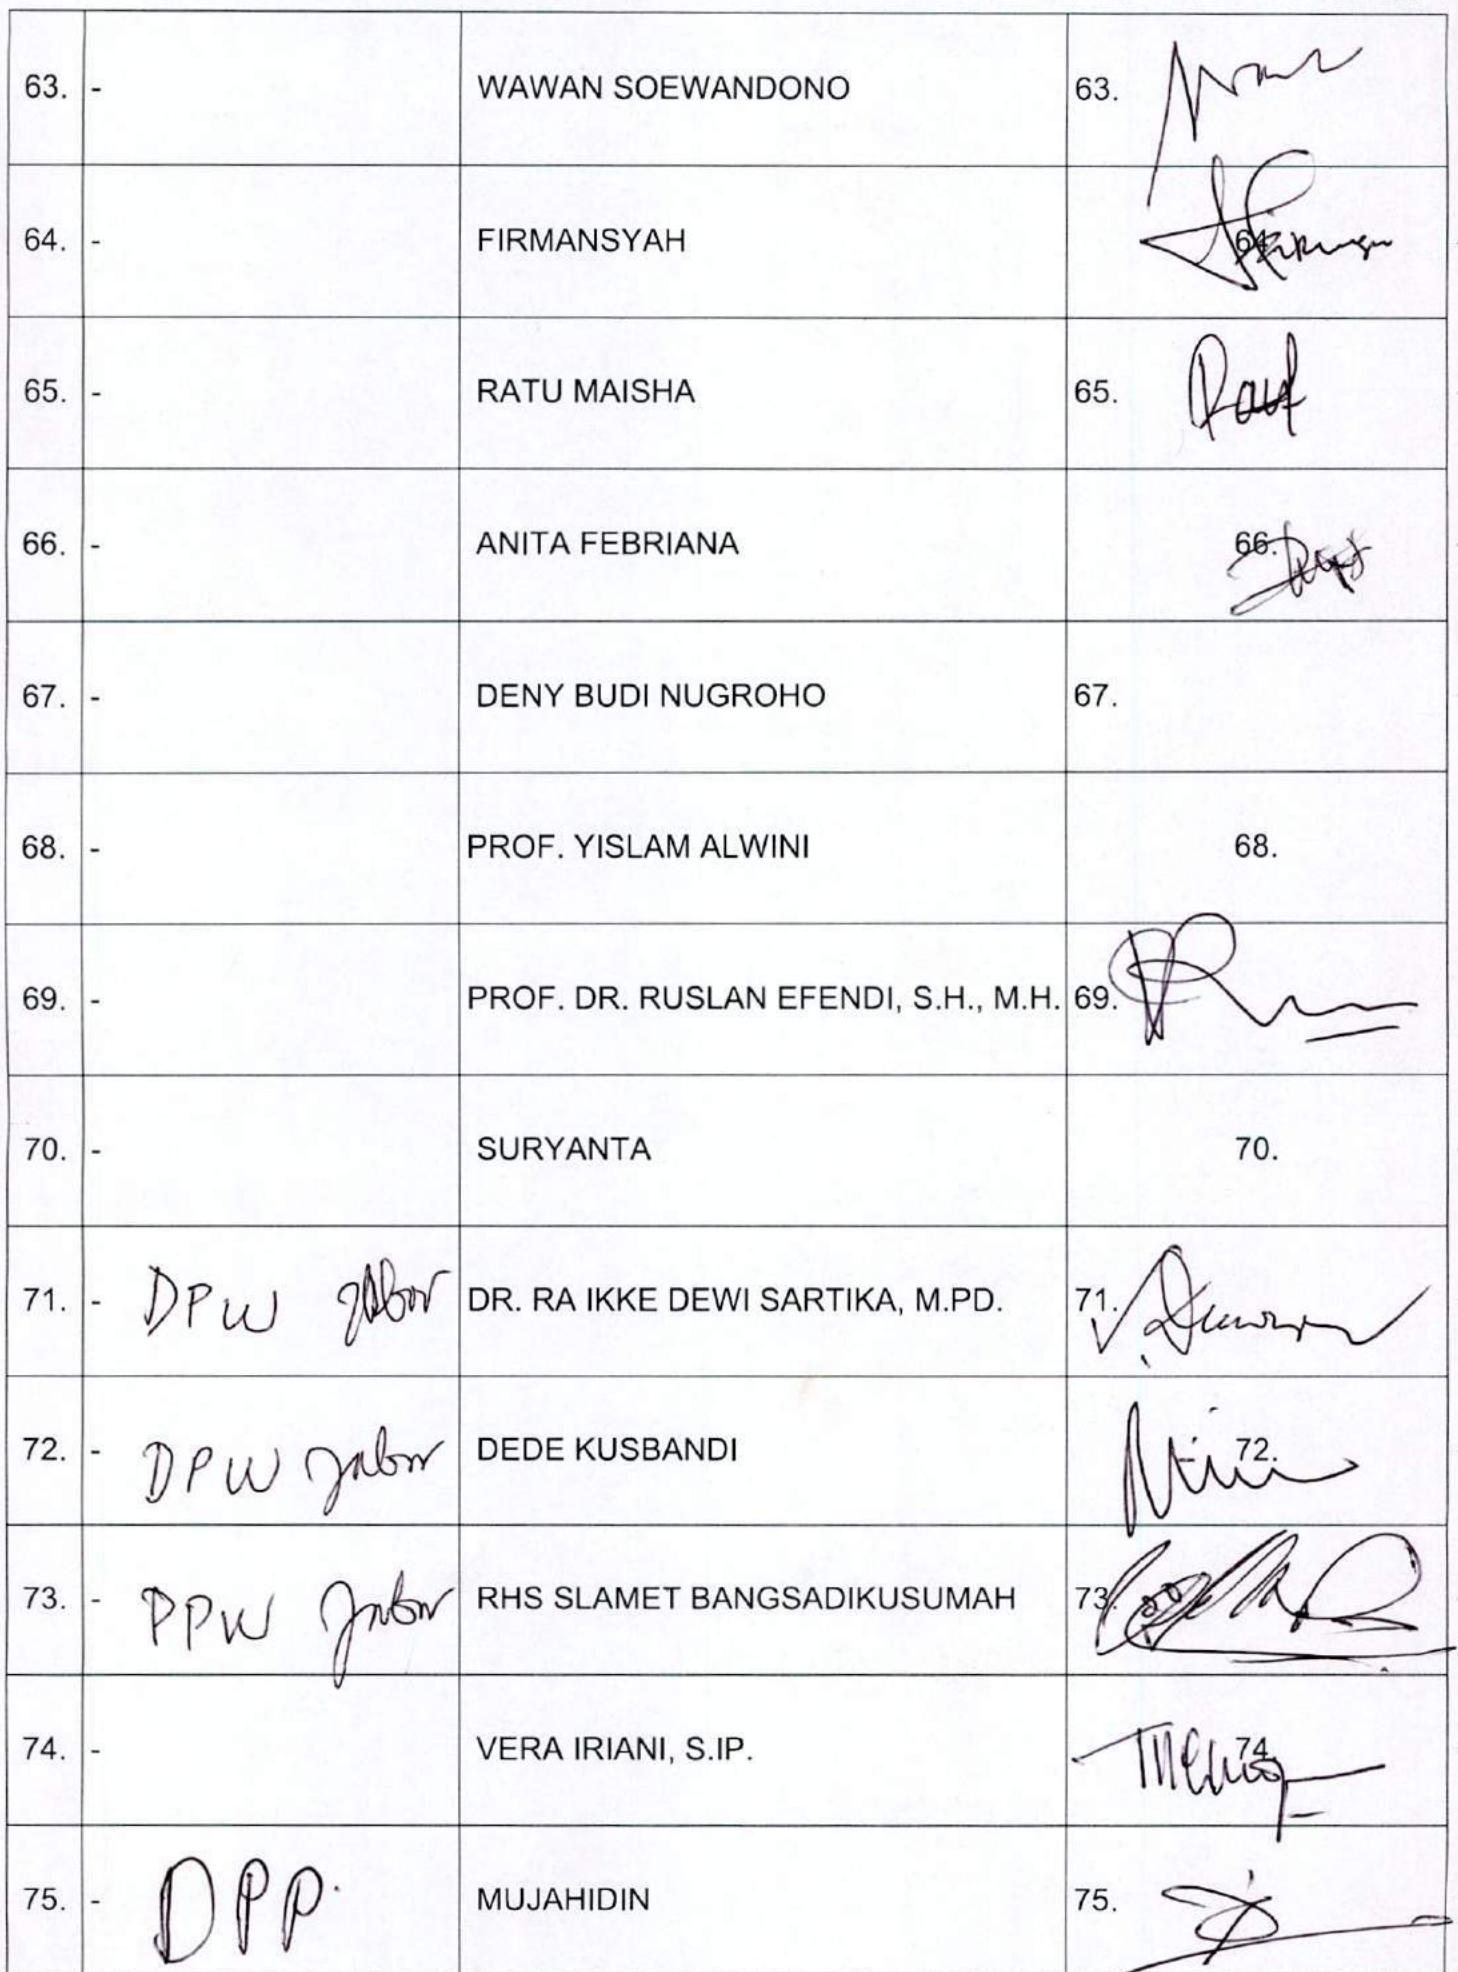 63. - WAWAN SOEWANDONO 63.
64. - FIRMANSYAH 64.
65. - RATU MAISHA 65.
66. - ANITA FEBRIANA 66.
67. - DENY BUDI NUGROHO 67.
68. - PROF. YISLAM ALWINI 68.
69. - PROF. DR. RUSLAN EFENDI, S.H., M.H. 69.
70. - SURYANTA 70.
71. - DPW Jabar DR. RA IKKE DEWI SARTIKA, M.PD. 71.
72. - DPW Jabar DEDE KUSBANDI 72.
73. - DPW Jabar RHS SLAMET BANGSADIKUSUMAH 73.
74. - VERA IRIANI, S.IP. 74.
75. - DPP. MUJAHIDIN 75.